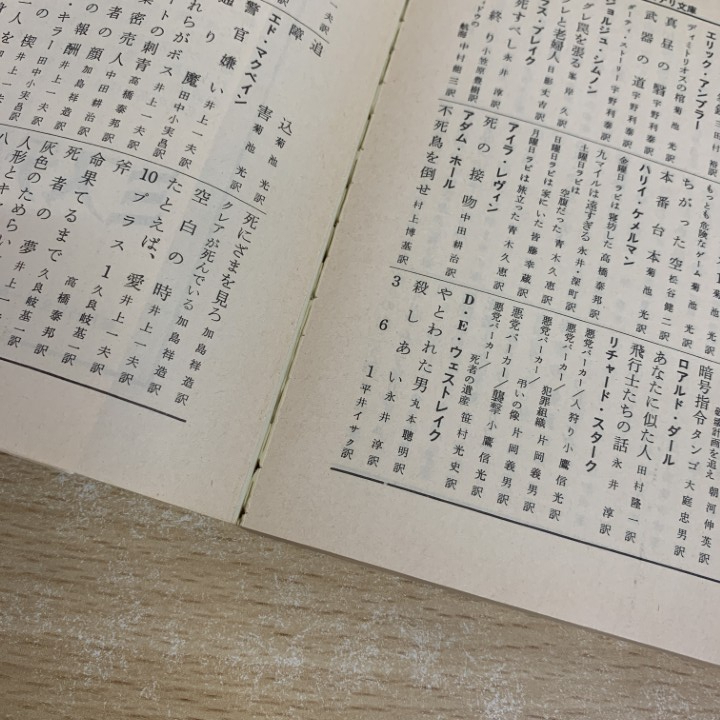 リ文庫
エリック・アンブラー
ディミトリオスの棺 菊池光訳
真昼の翳 宇野利泰訳
ダーティ・ストーリー 宇野利泰訳
武器の道 宇野利泰訳
ジョルジュ・シムノン
グレ罠を張る 峯岸久訳
グレと老婦人 日影丈吉訳
ラス・ブレイク
死すべし 永井淳訳
終り 小笠原豊樹訳
中村能三訳
もっとも危険なゲーム 菊池光訳
ちがった空 松谷健二訳
本番台本 菊池光訳
ハリイ・ケメルマン
金曜日ラビは寝坊した 高橋泰邦訳
九マイルは遠すぎる 永井・深町訳
土曜日ラビは空腹だった 青木久恵訳
日曜日ラビは家にいた 皆藤幸蔵訳
月曜日ラビは旅立った 青木久恵訳
アイラ・レヴィン
死の接吻 中田耕治訳
アダム・ホール
不死鳥を倒せ 村上博基訳
計画を追え 朝河伸英訳
暗号指令タンゴ 大庭忠男訳
ロアルド・ダール
あなたに似た人 田村隆一訳
飛行士たちの話 永井淳訳
リチャード・スターク
悪党パーカー/人狩り 小鷹信光訳
悪党パーカー/犯罪組織 片岡義男訳
悪党パーカー/弔いの像 片岡義男訳
悪党パーカー/襲撃 小鷹信光訳
悪党パーカー/死者の遺産 笹村光史訳
D・E・ウェストレイク
やとわれた男 丸本聰明訳
殺しあい 永井淳訳
361 平井イサク訳
追込 菊池光訳
障害 菊池光訳
エド・マクベイン
警官嫌い 井上一夫訳
通り魔 田中小実昌訳
れらがボス 井上一夫訳
ートの刺青 高橋泰邦訳
密売人 中田耕治訳
者の顔 加島祥造訳
の報酬 井上一夫訳
・キラー 田中小実昌訳
楔 井上一夫訳
死にざまを見ろ 加島祥造訳
クレアが死んでいる 加島祥造訳
空白の時 井上一夫訳
たとえば、愛 井上一夫訳
10プラス1 久良岐基一訳
斧 高橋泰邦訳
命果てるまで 久良岐基一訳
死者の夢
灰色のためらい
人形とキ